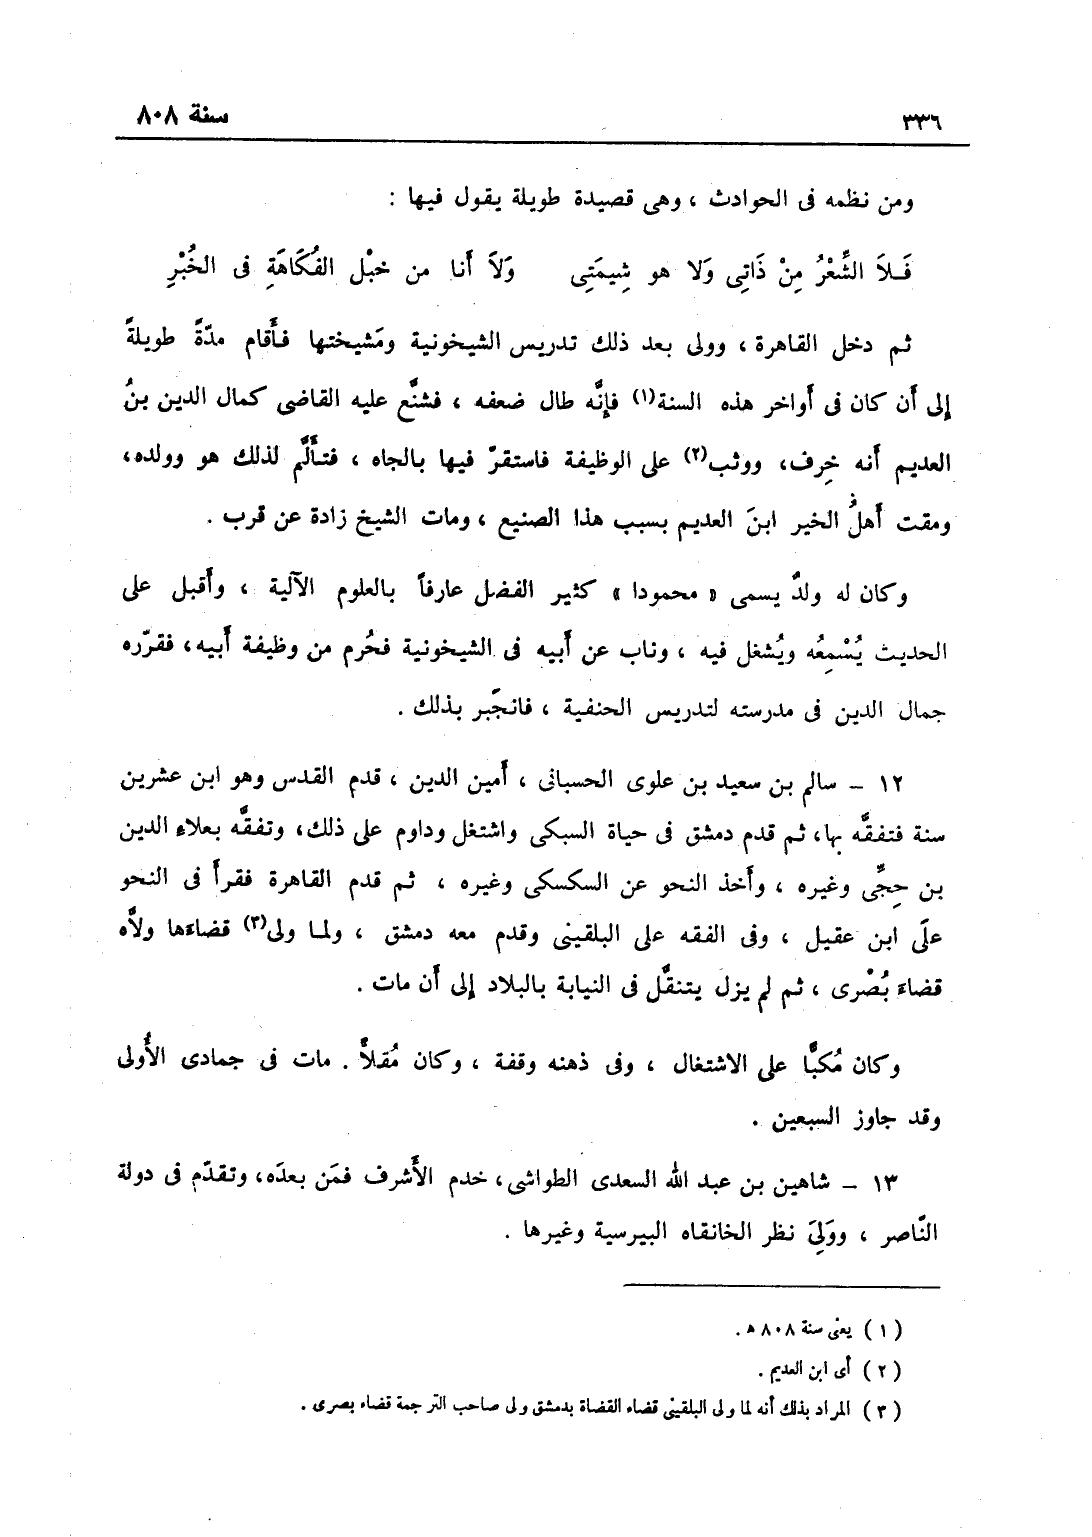 ٣٣٦ سنة ٨٠٨
ومن نظمه فى الحوادث ، وهى قصيدة طويلة يقول فيها :
فَلاَ الشِّعْرُ مِنْ ذَاتِى وَلا هو شِيمَتِى وَلاَ أَنا من خيْل الفُكَاهَةِ فى الخُبْرِ
ثم دخل القاهرة ، وولى بعد ذلك تدريس الشيخونية ومَشيختها فأَقام مدّةً طويلةً
إلى أَن كان فى أَواخر هذه السنة(١) فإنَّه طال ضعفه ، فشنَّع عليه القاضى كمال الدين بنُ
العديم أَنه خرِف، ووثب(٢) على الوظيفة فاستقرّ فيها بالجاه ، فتأَلَّم لذلك هو وولده،
ومقت أَهلُ الخير ابنَ العديم بسبب هذا الصنيع ، ومات الشيخ زادة عن قرب .
وكان له ولدٌ يسمى « محمودا » كثير الفضل عارفاً بالعلوم الآلية ، وأَقبل على
الحديث يُسْمِعُه ويُشغل فيه ، وناب عن أَبيه فى الشيخونية فحُرم من وظيفة أَبيه، فقرّره
جمال الدين فى مدرسته لتدريس الحنفية ، فانجَبر بذلك .
١٢ – سالم بن سعيد بن علوى الحسبانى ، أَمين الدين ، قدم القدس وهو ابن عشرين
سنة فتفقَّه بها، ثم قدم دمشق فى حياة السبكى واشتغل وداوم على ذلك، وتفقَّه بعلاء الدين
بن حِجِّى وغيره ، وأَخذ النحو عن السكسكى وغيره ، ثم قدم القاهرة فقرأَ فى النحو
علَى ابن عقيل ، وفى الفقه على البلقينى وقدم معه دمشق ، ولما ولى(٣) قضاءَها ولاَّه
قضاءَ بُصْرى ، ثم لم يزل يتنقَّل فى النيابة بالبلاد إلى أَن مات .
وكان مُكبًّا على الاشتغال ، وفى ذهنه وقفة ، وكان مُقلاًّ . مات فى جمادى الأُولى
وقد جاوز السبعين .
١٣ – شاهين بن عبد الله السعدى الطواشى، خدم الأَشرف فمَن بعدَه، وتقدّم فى دولة
النَّاصر ، ووَلِىَ نظر الخانقاه البيرسية وغيرها .
( ١ ) يعنى سنة ٨٠٨ ه .
( ٢ ) أى ابن العديم .
( ٣ ) المراد بذلك أنه لما ولى البلقينى قضاء القضاة بدمشق ولى صاحب الترجمة قضاء بصرى .